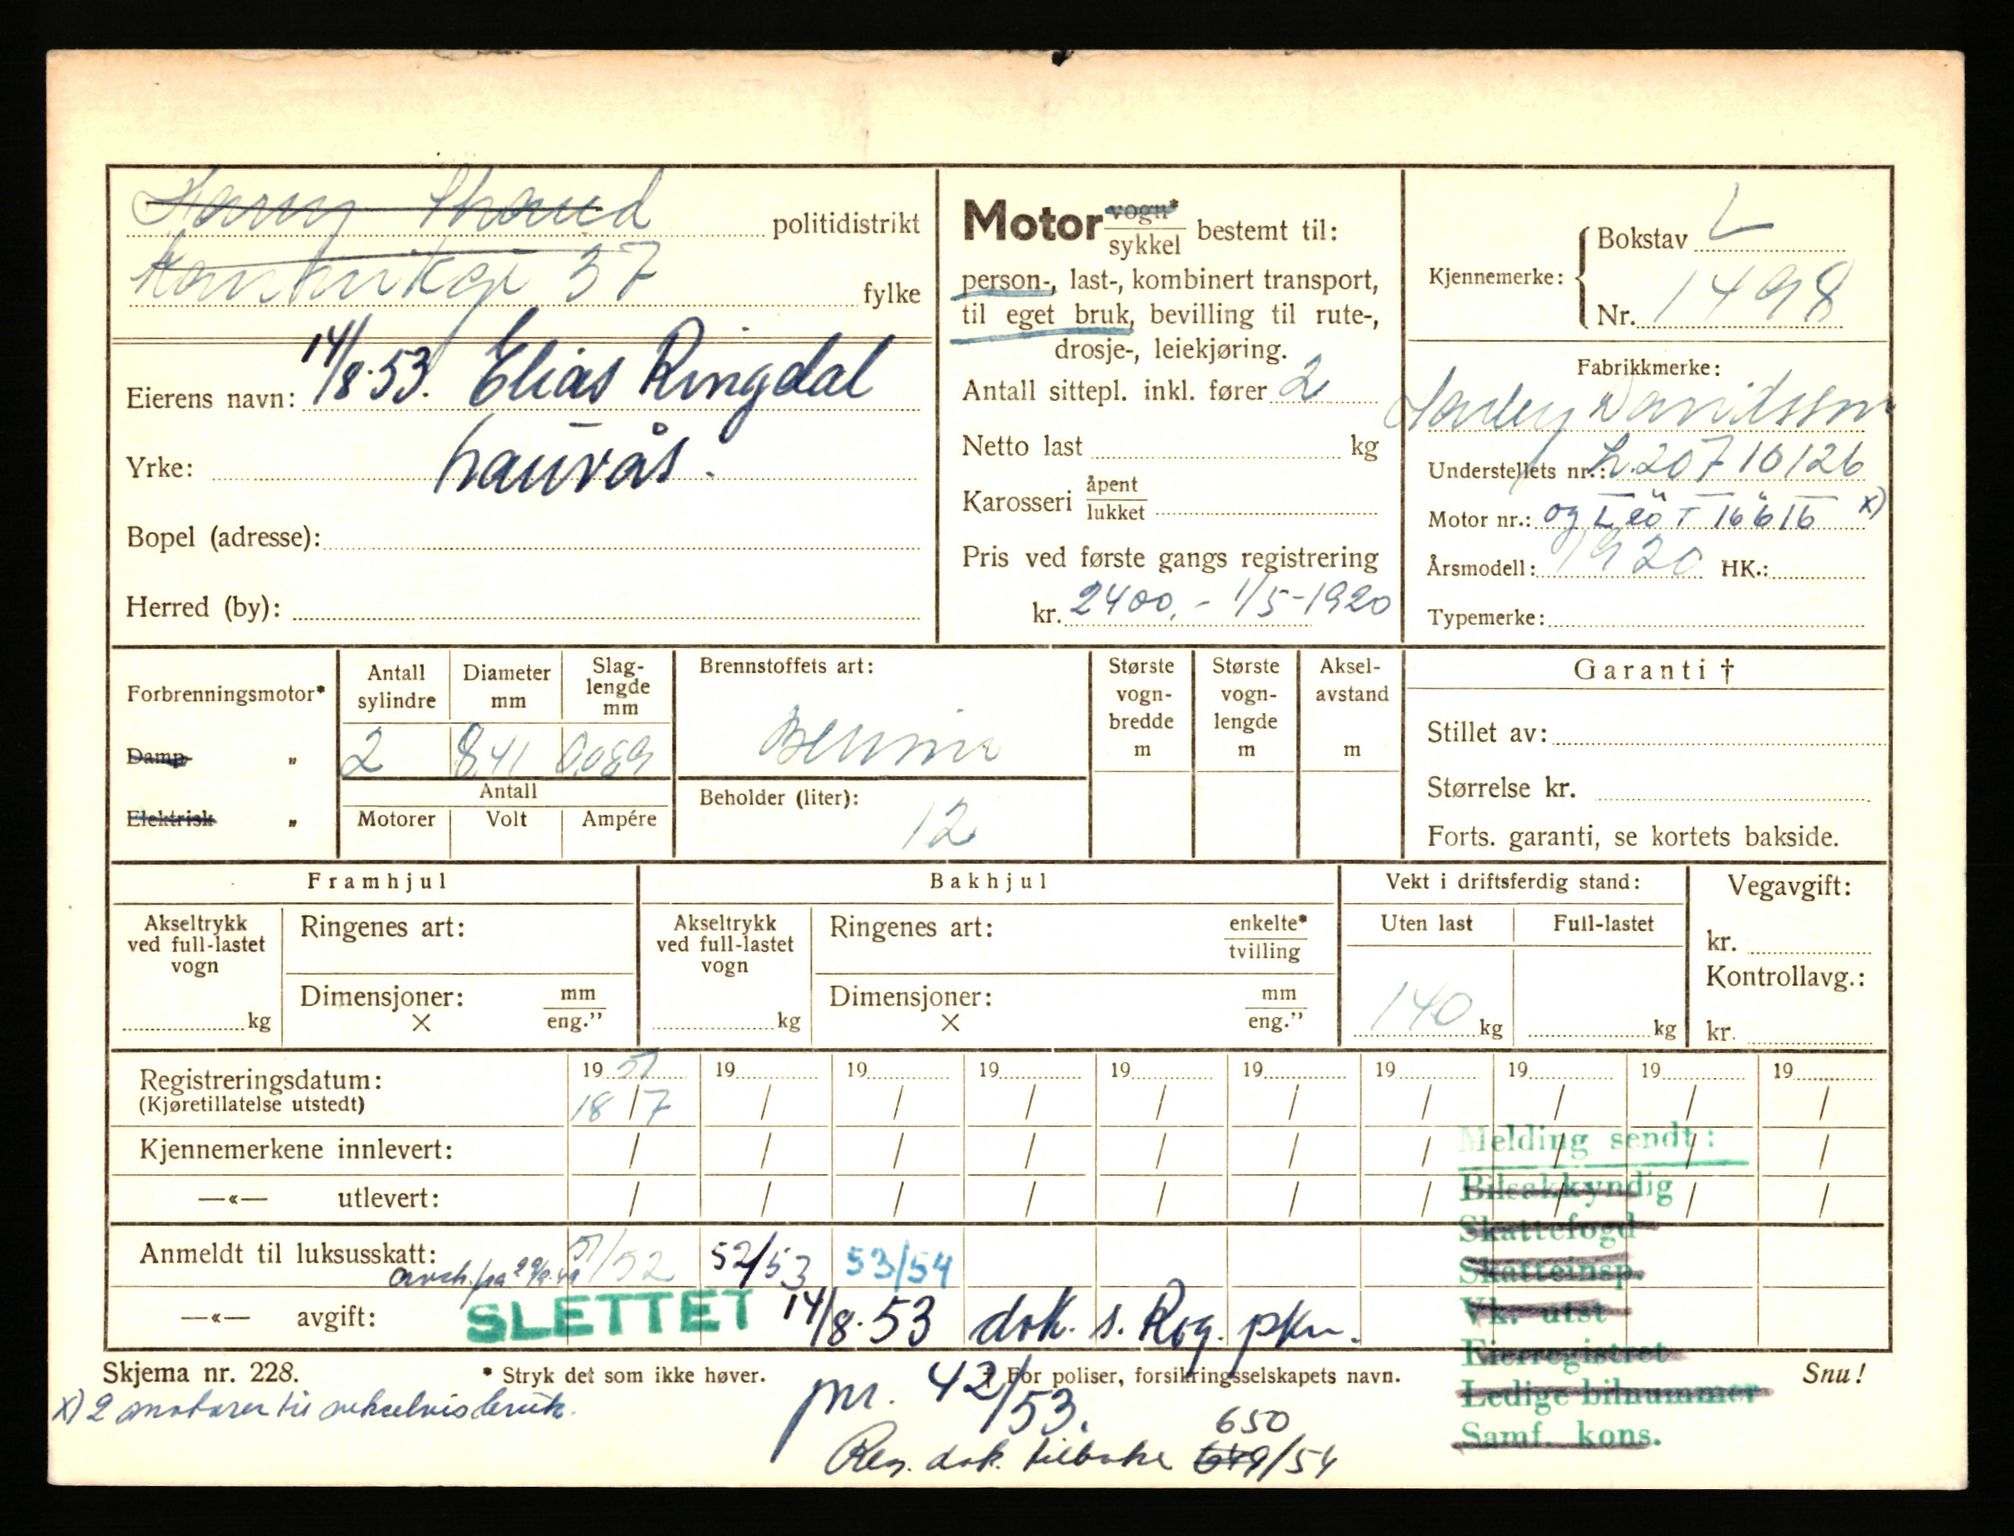 Harry Strand politidistrikt
37 fylke
Eierens navn: 14/8.53. Elias Ringdal
Yrke: Laurås.
Bopel (adresse):
Herred (by):
Motor vogn* sykkel bestemt til:
person-, last-, kombinert transport,
til eget bruk, bevilling til rute-,
drosje-, leiekjøring.
Antall sittepl. inkl. fører 2
Netto last kg
Karosseri åpent lukket
Pris ved første gangs registrering
kr. 2400,- 1/5-1920
Kjennemerke: Bokstav L
Nr. 1498
Fabrikkmerke:
Harley Davidsson
Understellets nr.: L.20716126
Motor nr.: og L 20 T 16616 x)
Årsmodell: 1920 HK.:
Typemerke:
Forbrenningsmotor*
Damp "
Elektrisk "
Antall sylindre
Diameter mm
Slag-lengde mm
2 8,41 0,089
Antall
Motorer Volt Ampére
Brennstoffets art:
Bensin
Beholder (liter):
12
Største vogn-bredde m
Største vogn-lengde m
Aksel-avstand m
Garanti †
Stillet av:
Størrelse kr.
Forts. garanti, se kortets bakside.
Framhjul
Akseltrykk ved full-lastet vogn
kg
Ringenes art:
Dimensjoner: mm
× eng."
Bakhjul
Akseltrykk ved full-lastet vogn
kg
Ringenes art: enkelte* tvilling
Dimensjoner: mm
× eng."
Vekt i driftsferdig stand:
Uten last Full-lastet
140 kg kg
Vegavgift:
kr.
Kontrollavg.:
kr.
Registreringsdatum: 19 51 19 19 19 19 19 19 19 19 19
(Kjøretillatelse utstedt) 18/7 / / / / / / / / /
Kjennemerkene innlevert: / / / / / / / / / /
—«— utlevert: / / / / / / / / / /
Anmeldt til luksusskatt: 51/52 52/53 53/54
—«— avgift: SLETTET 14/8.53 dok. s. Rog. pkn.
Melding sendt:
Bilsakkyndig
Skattefogd
Skatteinsp.
Vk. utst
Eierregistret
Ledige bilnummer
Samf. kons.
Skjema nr. 228. * Stryk det som ikke høver. † For poliser, forsikringsselskapets navn. Snu!
x) 2 motorer til vekselvis bruk.
pnr. 42/53.
650
Reg. dok. tilbake 649/54